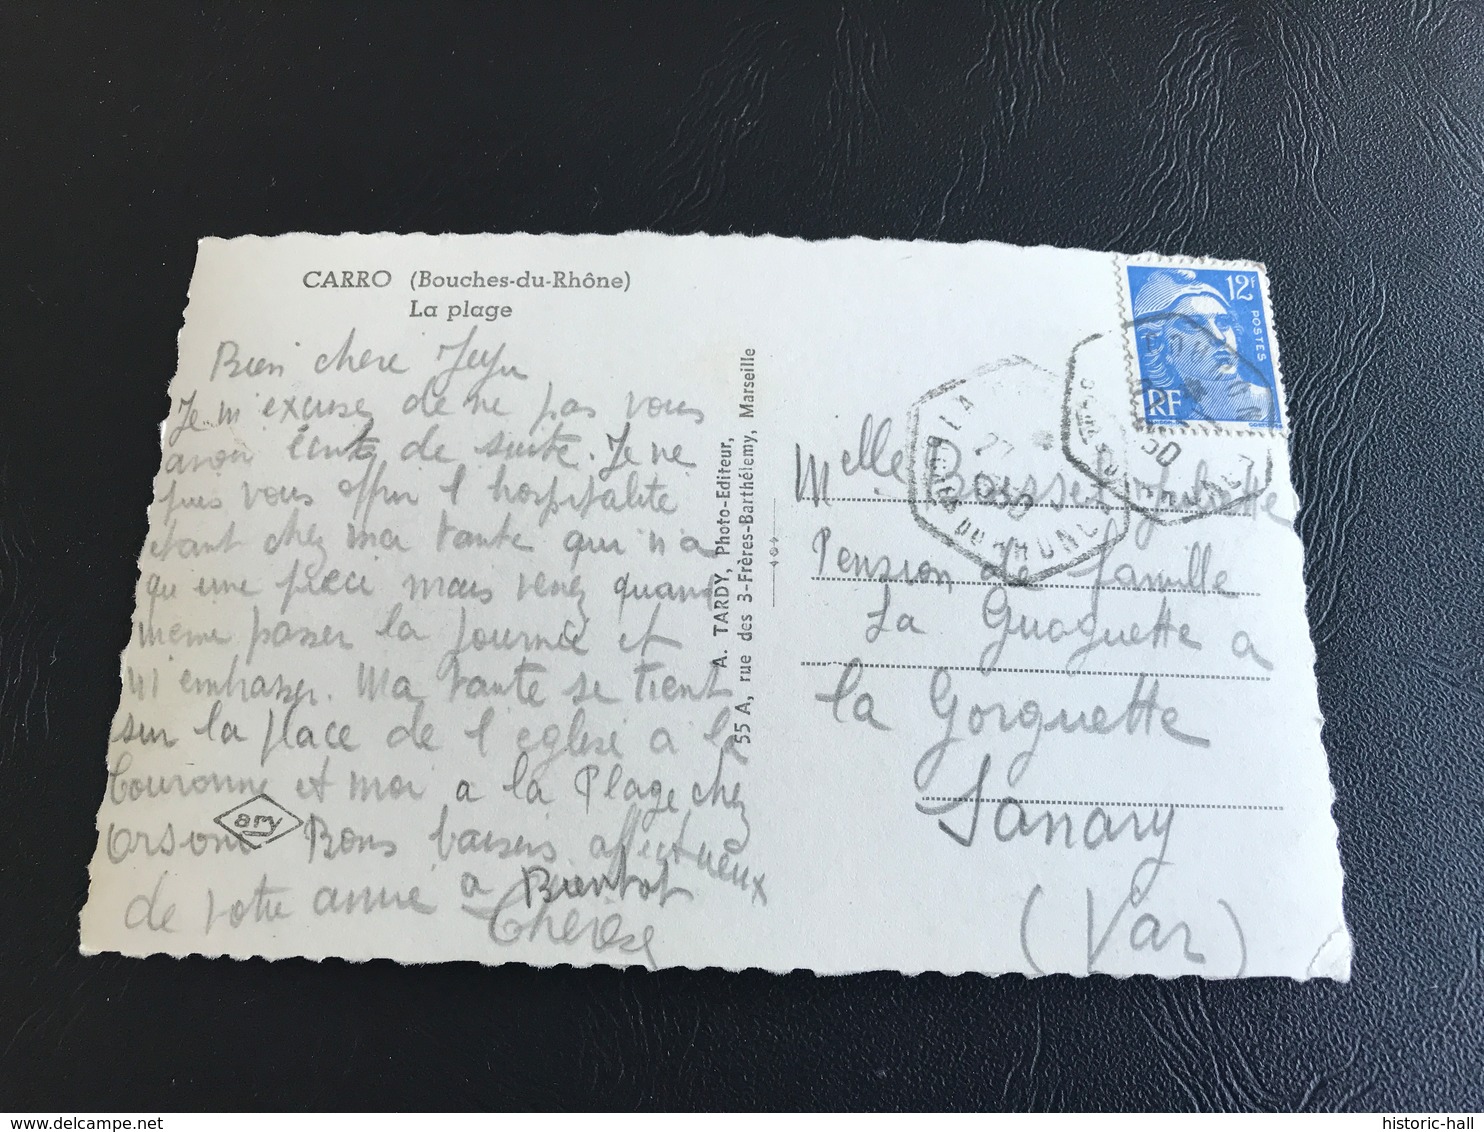 CARRO (Bouches-du-Rhône)
La plage
Bien chere
Je m'excuse de ne pas vous
avoir de suite. Je ne
puis vous offrir l hospitalité
etant chez ma tante qui n'a
qu une pieci mais venez quand
meme passer la journée et
m'embrasser. Ma tante se tient
sur la place de l eglise a la
Couronne et moi a la Plage chez
Orsoni Bons baisers affectueux
de votre amie a Bientot
Therese
ary
A. TARDY, Photo-Editeur,
55 A, rue des 3-Frères-Barthélemy, Marseille
12F
POSTES
RF
LA
27
1950
DU RHONE
50
Melle
Pension de famille
La Guoguette a
la Gorguette
Sanary
(Var)
historic-hall